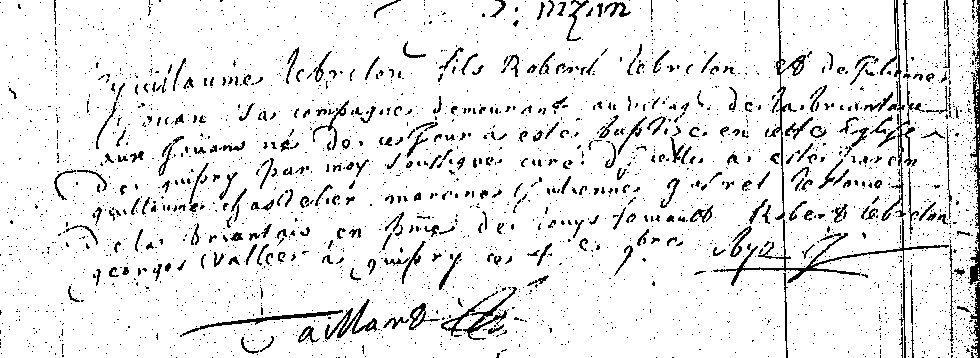 guillaume lebreton fils Robert lebreton et de Julienne
Jouan sa compagne demeurant au village de la briantais
aux Jouans né de ce Jour a esté baptizé en cette Eglise
de guipry par moy soussigné curé d'icelle a esté parein
guillaume chastelier mareine Julienne guerel
de la briantais en pñce de louys Robert lebreton
georges Vallée a guipry ce 4e 9bre
aillard